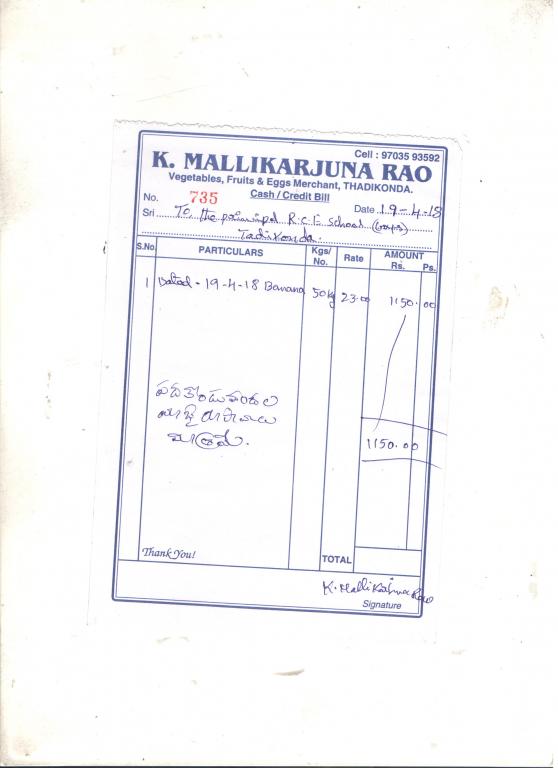 Cell : 97035 93592
K. MALLIKARJUNA RAO
Vegetables, Fruits & Eggs Merchant, THADIKONDA.
Cash / Credit Bill
No. 735 Date 19-4-18
Sri To the principal R.C.E School (Boys)
Tadikonda.
S.No. PARTICULARS Kgs/ No. Rate AMOUNT Rs. Ps.
1 Dated - 19-4-18 Banana 50kg 23.00 1150.00
పదకొండువందల
యాభై రూపాయలు
మాత్రమే.
1150.00
Thank You!
TOTAL
K. Mallikarjuna Rao
Signature